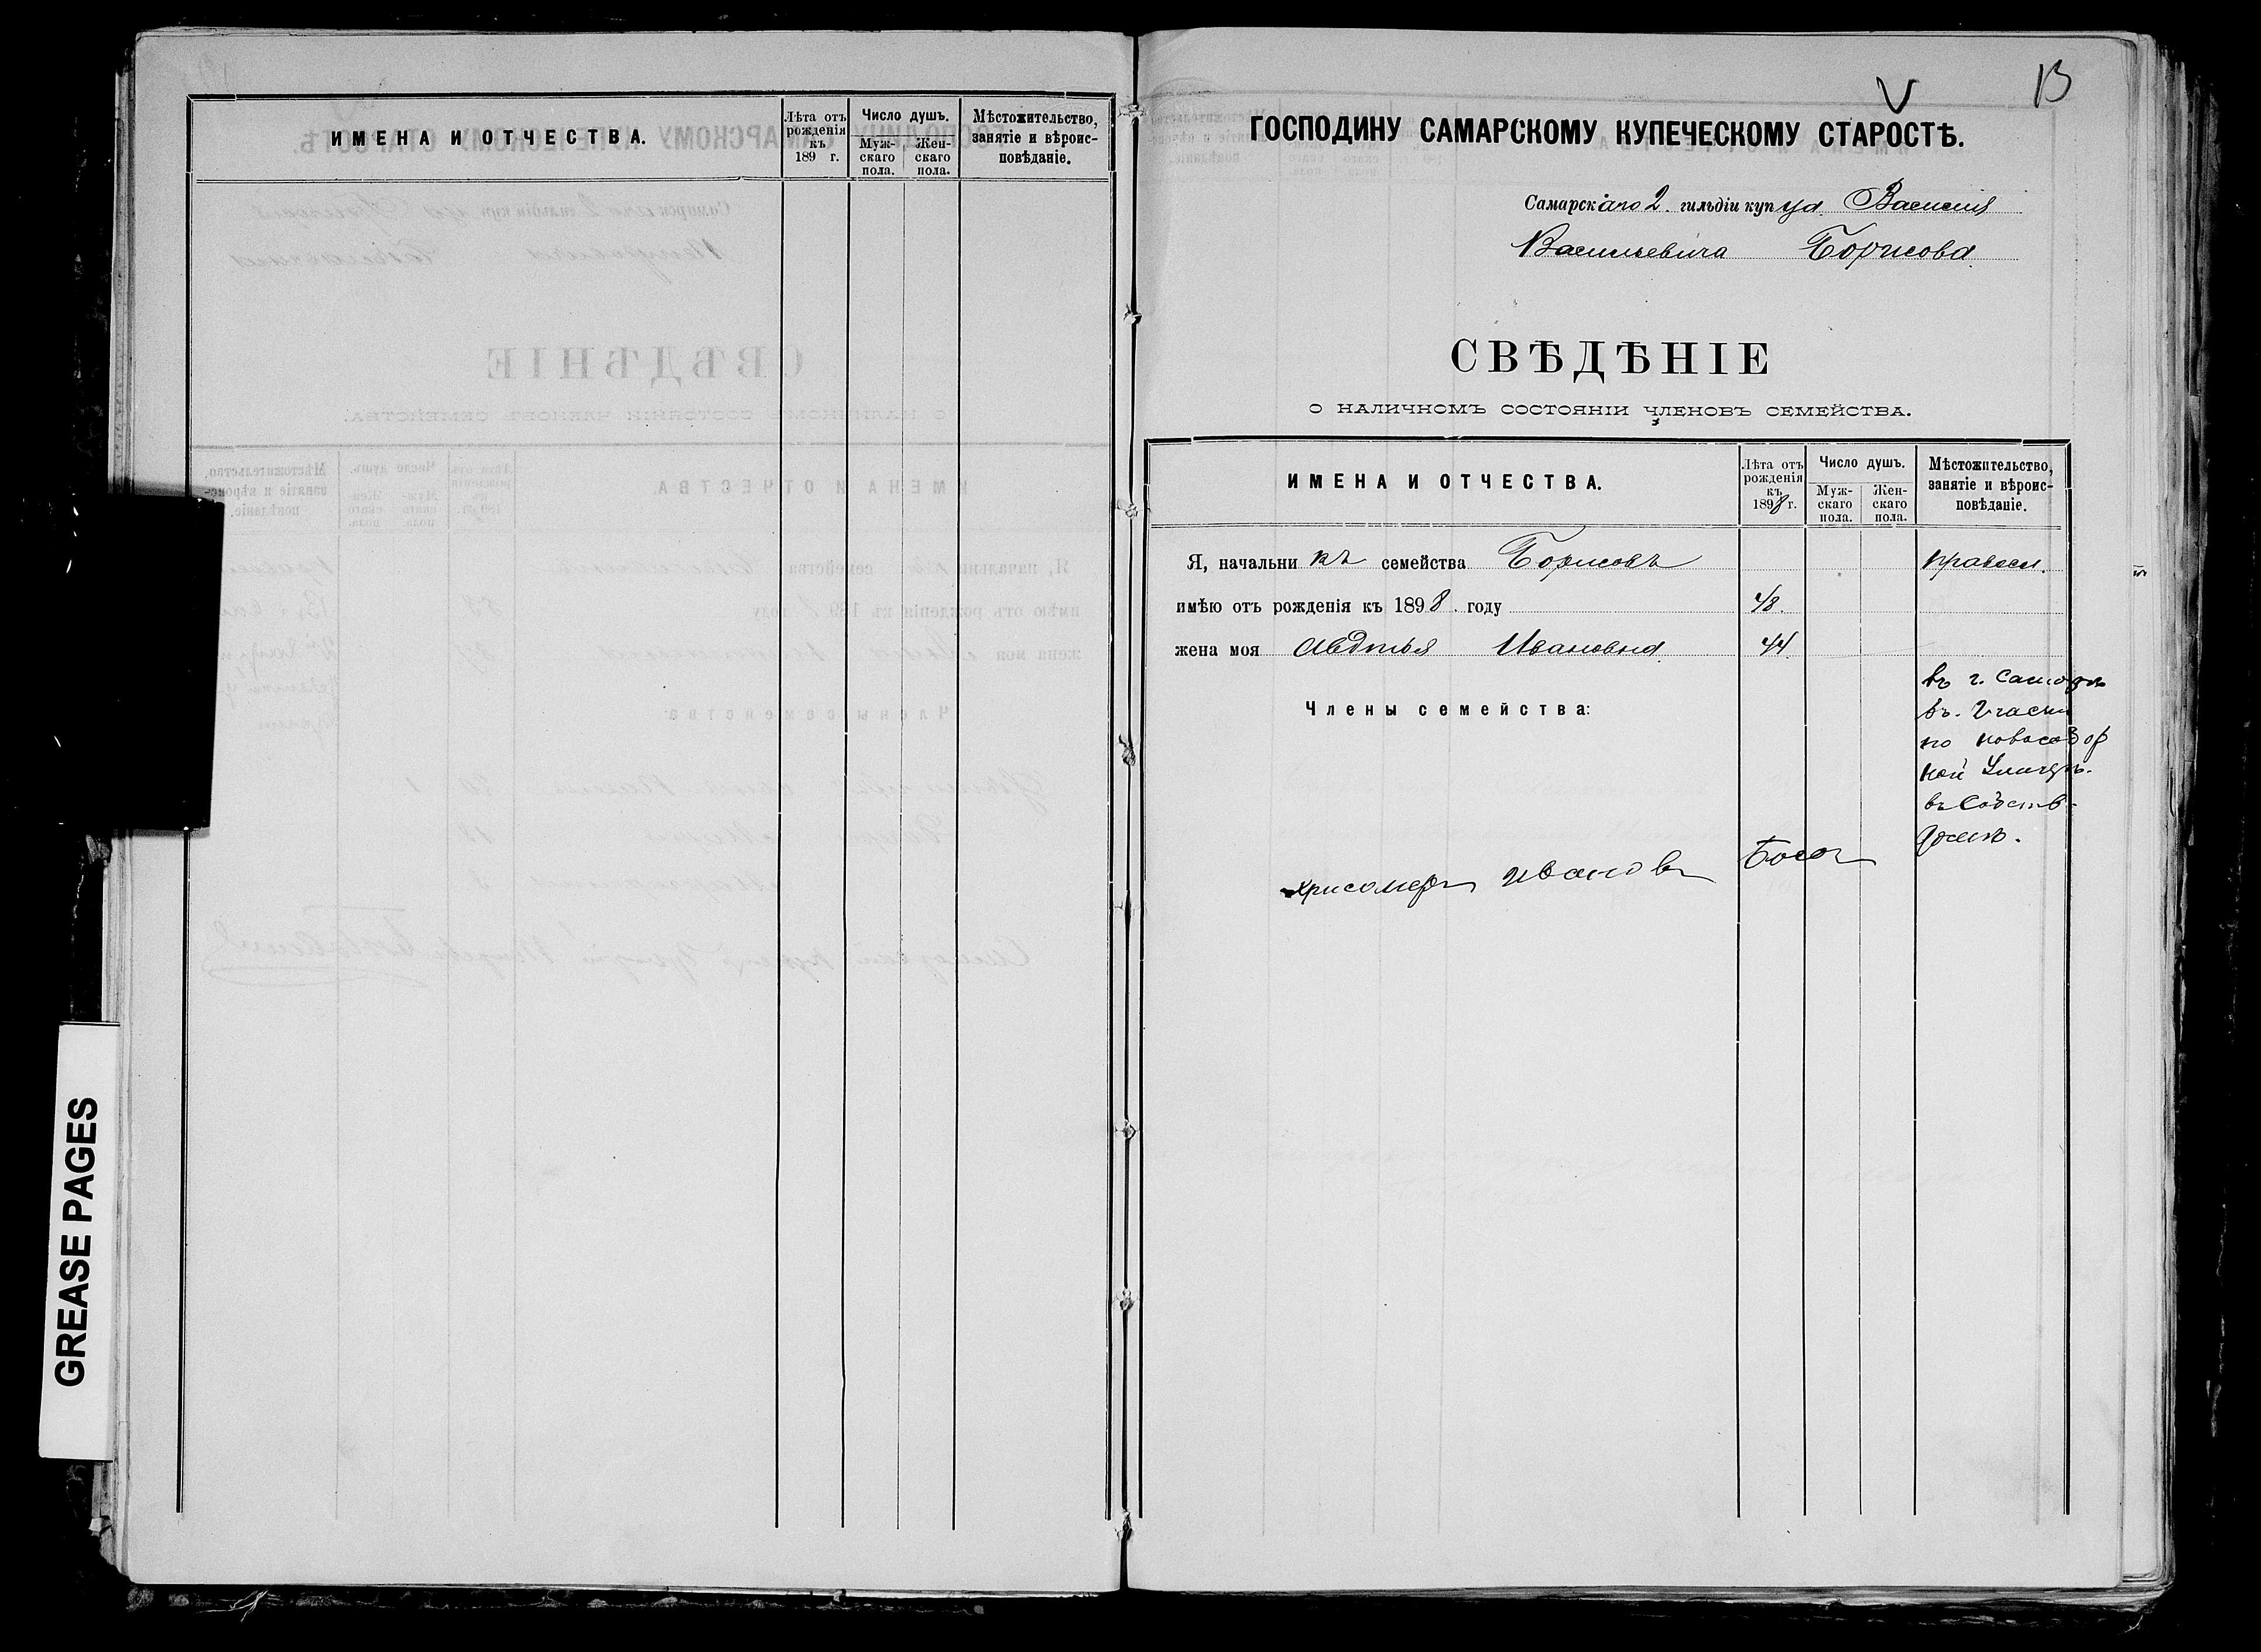 ИМЕНА И ОТЧЕСТВА.
Лѣта отъ рожденія къ 189 г.
Число душъ.
Муж-скаго пола.
Жен-скаго пола.
Мѣстожительство, занятіе и вѣроис-повѣданіе.
GREASE PAGES
13
ГОСПОДИНУ САМАРСКОМУ КУПЕЧЕСКОМУ СТАРОСТѢ.
Самарскаго 2. гильдіи купца Василія
Васильевича Борисова
СВѢДѢНІЕ
О НАЛИЧНОМЪ СОСТОЯНІИ ЧЛЕНОВЪ СЕМЕЙСТВА.
ИМЕНА И ОТЧЕСТВА.
Лѣта отъ рожденія къ 1898 г.
Число душъ.
Муж-скаго пола.
Жен-скаго пола.
Мѣстожительство, занятіе и вѣроис-повѣданіе.
Я, начальникъ семейства Борисовъ правосл.
имѣю отъ рожденія къ 1898. году 48.
жена моя Авдотья Ивановна 44
въ г. Самарѣ
Члены семейства:
въ. 2 части
по новособор
ной Улицѣ.
въ собств-
домѣ.